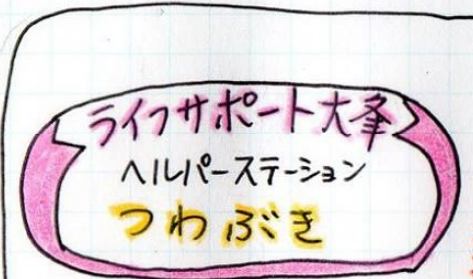 ライフサポート大峯
ヘルパーステーション
つわぶき